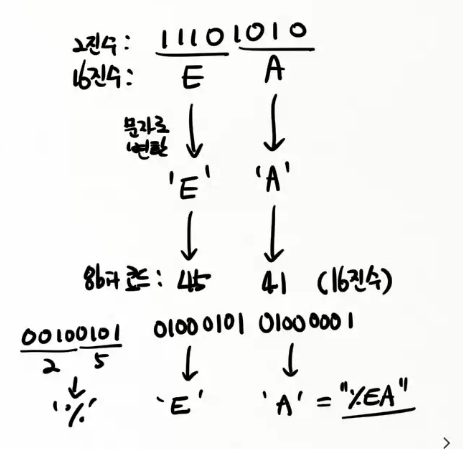 2진수: 11101010
16진수: E A
문자로
변환
'E' 'A'
86타 코드: 45 41 (16진수)
00100101 01000101 01000001
2 5
'%' 'E' 'A' = "%EA"